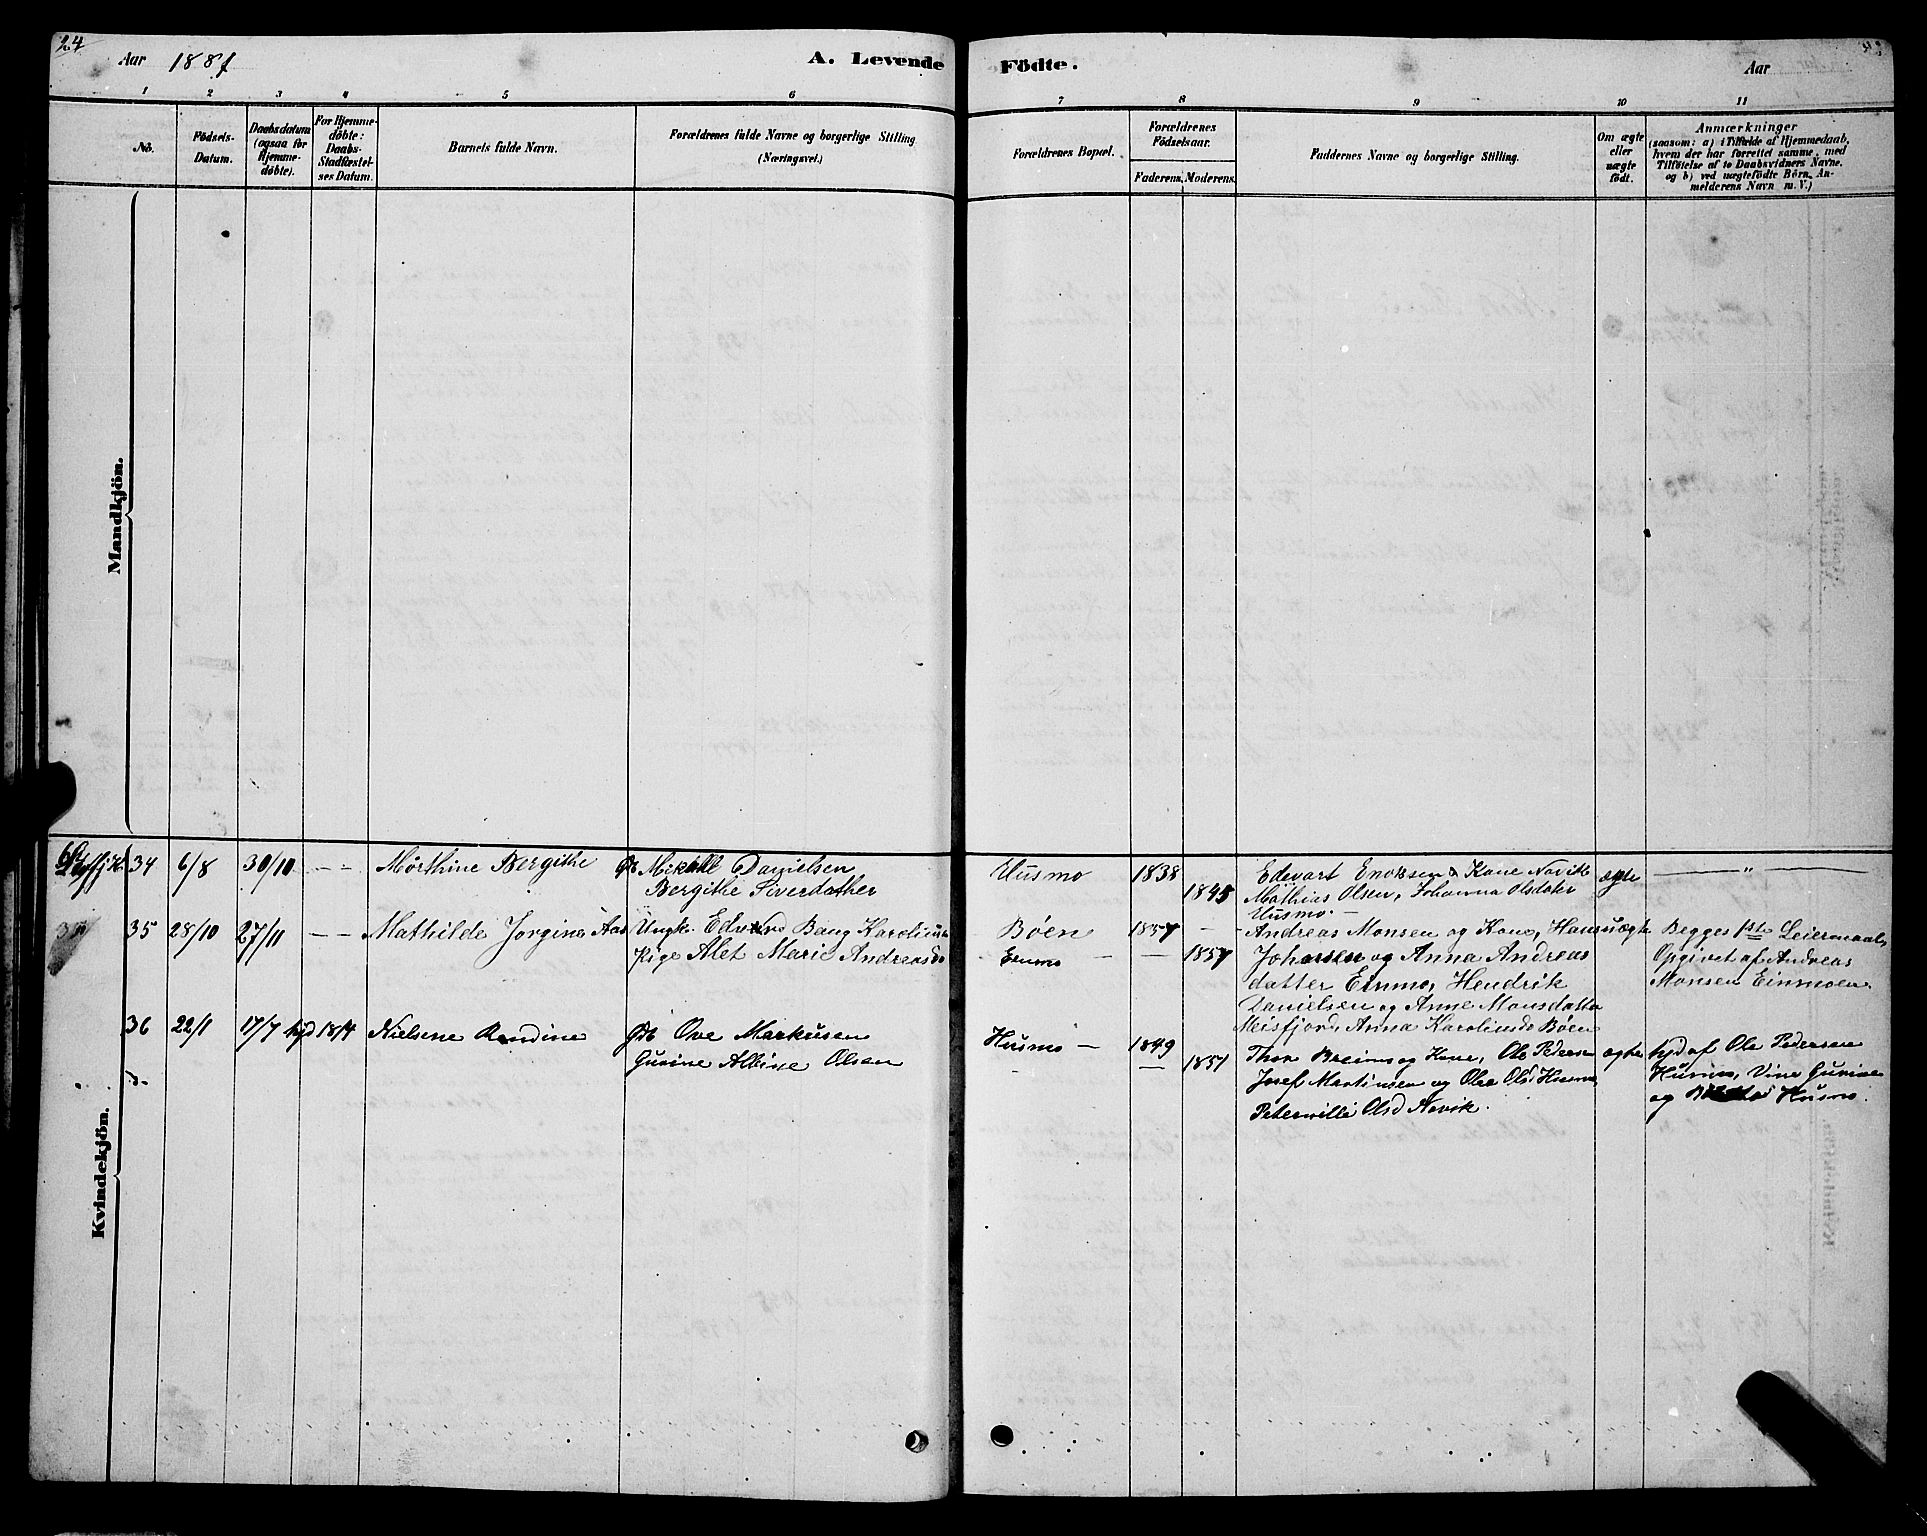 24
Aar 1881
A. Levende
Födte.
Aar
1 2 3 4 5 6 7 8 9 10 11
No.
Födsels-
Datum.
Daabsdatum
(ogsaa for
Hjemme-
döbte).
For Hjemme-
döbte:
Daabs-
Stadfæstel-
ses Datum.
Barnets fulde Navn.
Forældrenes fulde Navne og borgerlige Stilling
(Næringsvei.)
Forældrenes Bopæl.
Forældrenes
Födselsaar.
Faderens. Moderens.
Faddernes Navne og borgerlige Stilling.
Om ægte
eller
uægte
födt.
Anmærkninger
(saasom: a) i Tilfælde af Hjemmedaab,
hvem der har forrettet samme, med
Tilföielse af to Daabsvidners Navne,
og b) ved uægtefödte Börn, An-
melderens Navn m. V.)
Mandkjön.
Kvindekjön.
34 6/8 30/10 - - Mørthine Bergithe
Mikall Danielsen
Bergithe Siverdather
Husmo 1838
1845
Edevart Enoksen & Kone Novik
Mathias Olsen, Johanna Olsdater
Husmo. -
ægte
35 28/10 27/11 - - Mathilde Jorgine Aas
Ungk. Edvard Bang Karoliu
Pige Alet Marie Andreasd
Bøen 1857 -
Einmo - - 1857
Andreas Monsen og Kone, Hans
Johansen og Anna Andreas
datter Einmo, Hendrik
Danielsen og Anne Monsdatte
Meisfjord, Anna Karolinsd Bøen
uægte
Begges 1ste Leiermaal,
Opgivet af Andreas
Monsen Einmoen.
36 22/1 17/7 hjd 18/4 Nielsene Randine
Ove Markusen
Gurine Albine Olsen
Husmo - 1849
- 1851
Thor Breims og Kone, Ole Pedersen
Josef Martinsen og Olea Olsd Husmo
Petermille Olsd Novik.
ægte
hjd af Ole Pedersen
Husmo, Vine Gurine
og Husmo.